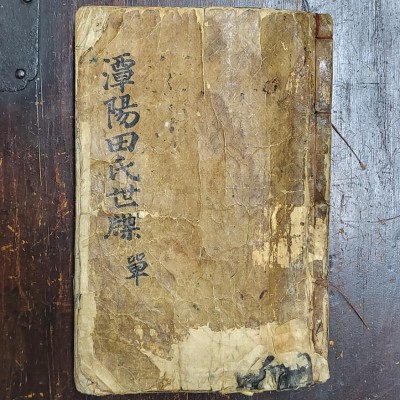 潭陽田氏世牒
單